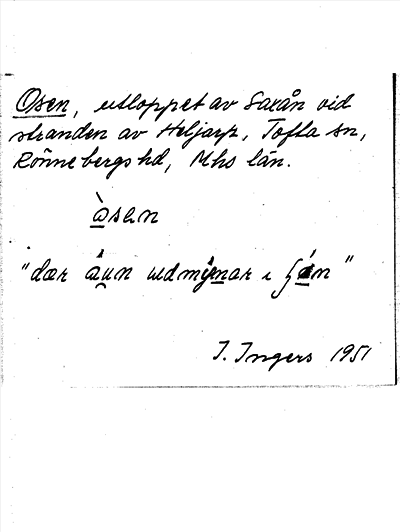 Osen, utloppet av Saxån vid
stranden av Häljarp, Tofta sn,
Rönnebergs hd, Mhs län.
òsen
"dær áun udmýnar i
I. Ingers 1951